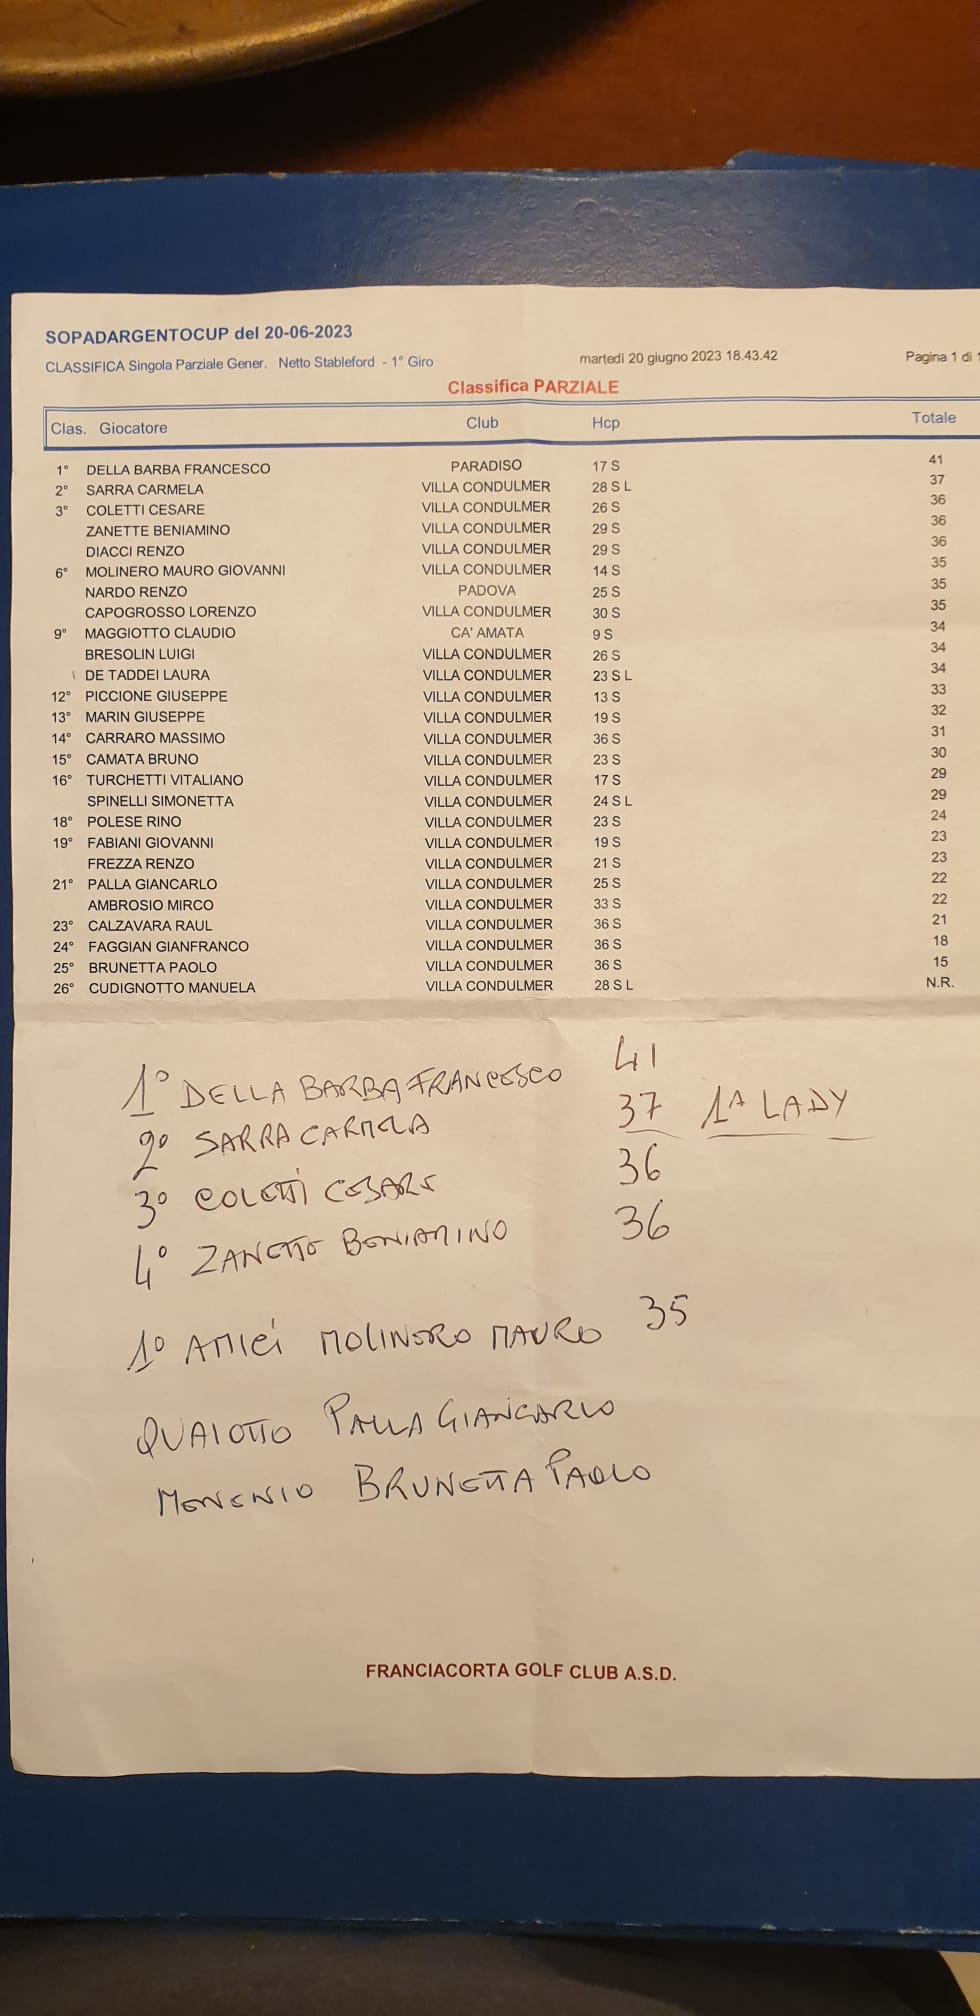 SOPADARGENTOCUP del 20-06-2023
CLASSIFICA Singola Parziale Gener. Netto Stableford - 1° Giro martedì 20 giugno 2023 18.43.42 Pagina 1 di 1
Classifica PARZIALE
Clas. Giocatore Club Hcp Totale
1° DELLA BARBA FRANCESCO PARADISO 17 S 41
2° SARRA CARMELA VILLA CONDULMER 28 S L 37
3° COLETTI CESARE VILLA CONDULMER 26 S 36
ZANETTE BENIAMINO VILLA CONDULMER 29 S 36
DIACCI RENZO VILLA CONDULMER 29 S 36
6° MOLINERO MAURO GIOVANNI VILLA CONDULMER 14 S 35
NARDO RENZO PADOVA 25 S 35
CAPOGROSSO LORENZO VILLA CONDULMER 30 S 35
9° MAGGIOTTO CLAUDIO CA' AMATA 9 S 34
BRESOLIN LUIGI VILLA CONDULMER 26 S 34
DE TADDEI LAURA VILLA CONDULMER 23 S L 34
12° PICCIONE GIUSEPPE VILLA CONDULMER 13 S 33
13° MARIN GIUSEPPE VILLA CONDULMER 19 S 32
14° CARRARO MASSIMO VILLA CONDULMER 36 S 31
15° CAMATA BRUNO VILLA CONDULMER 23 S 30
16° TURCHETTI VITALIANO VILLA CONDULMER 17 S 29
SPINELLI SIMONETTA VILLA CONDULMER 24 S L 29
18° POLESE RINO VILLA CONDULMER 23 S 24
19° FABIANI GIOVANNI VILLA CONDULMER 19 S 23
FREZZA RENZO VILLA CONDULMER 21 S 23
21° PALLA GIANCARLO VILLA CONDULMER 25 S 22
AMBROSIO MIRCO VILLA CONDULMER 33 S 22
23° CALZAVARA RAUL VILLA CONDULMER 36 S 21
24° FAGGIAN GIANFRANCO VILLA CONDULMER 36 S 18
25° BRUNETTA PAOLO VILLA CONDULMER 36 S 15
26° CUDIGNOTTO MANUELA VILLA CONDULMER 28 S L N.R.
1° DELLA BARBA FRANCESCO 41
2° SARRA CARMELA 37 1A LADY
3° COLETTI CESARE 36
4° ZANETTE BENIAMINO 36
1° AMICI MOLINERO MAURO 35
QUAIOTTO PALLA GIANCARLO
MENENIO BRUNETTA PAOLO
FRANCIACORTA GOLF CLUB A.S.D.